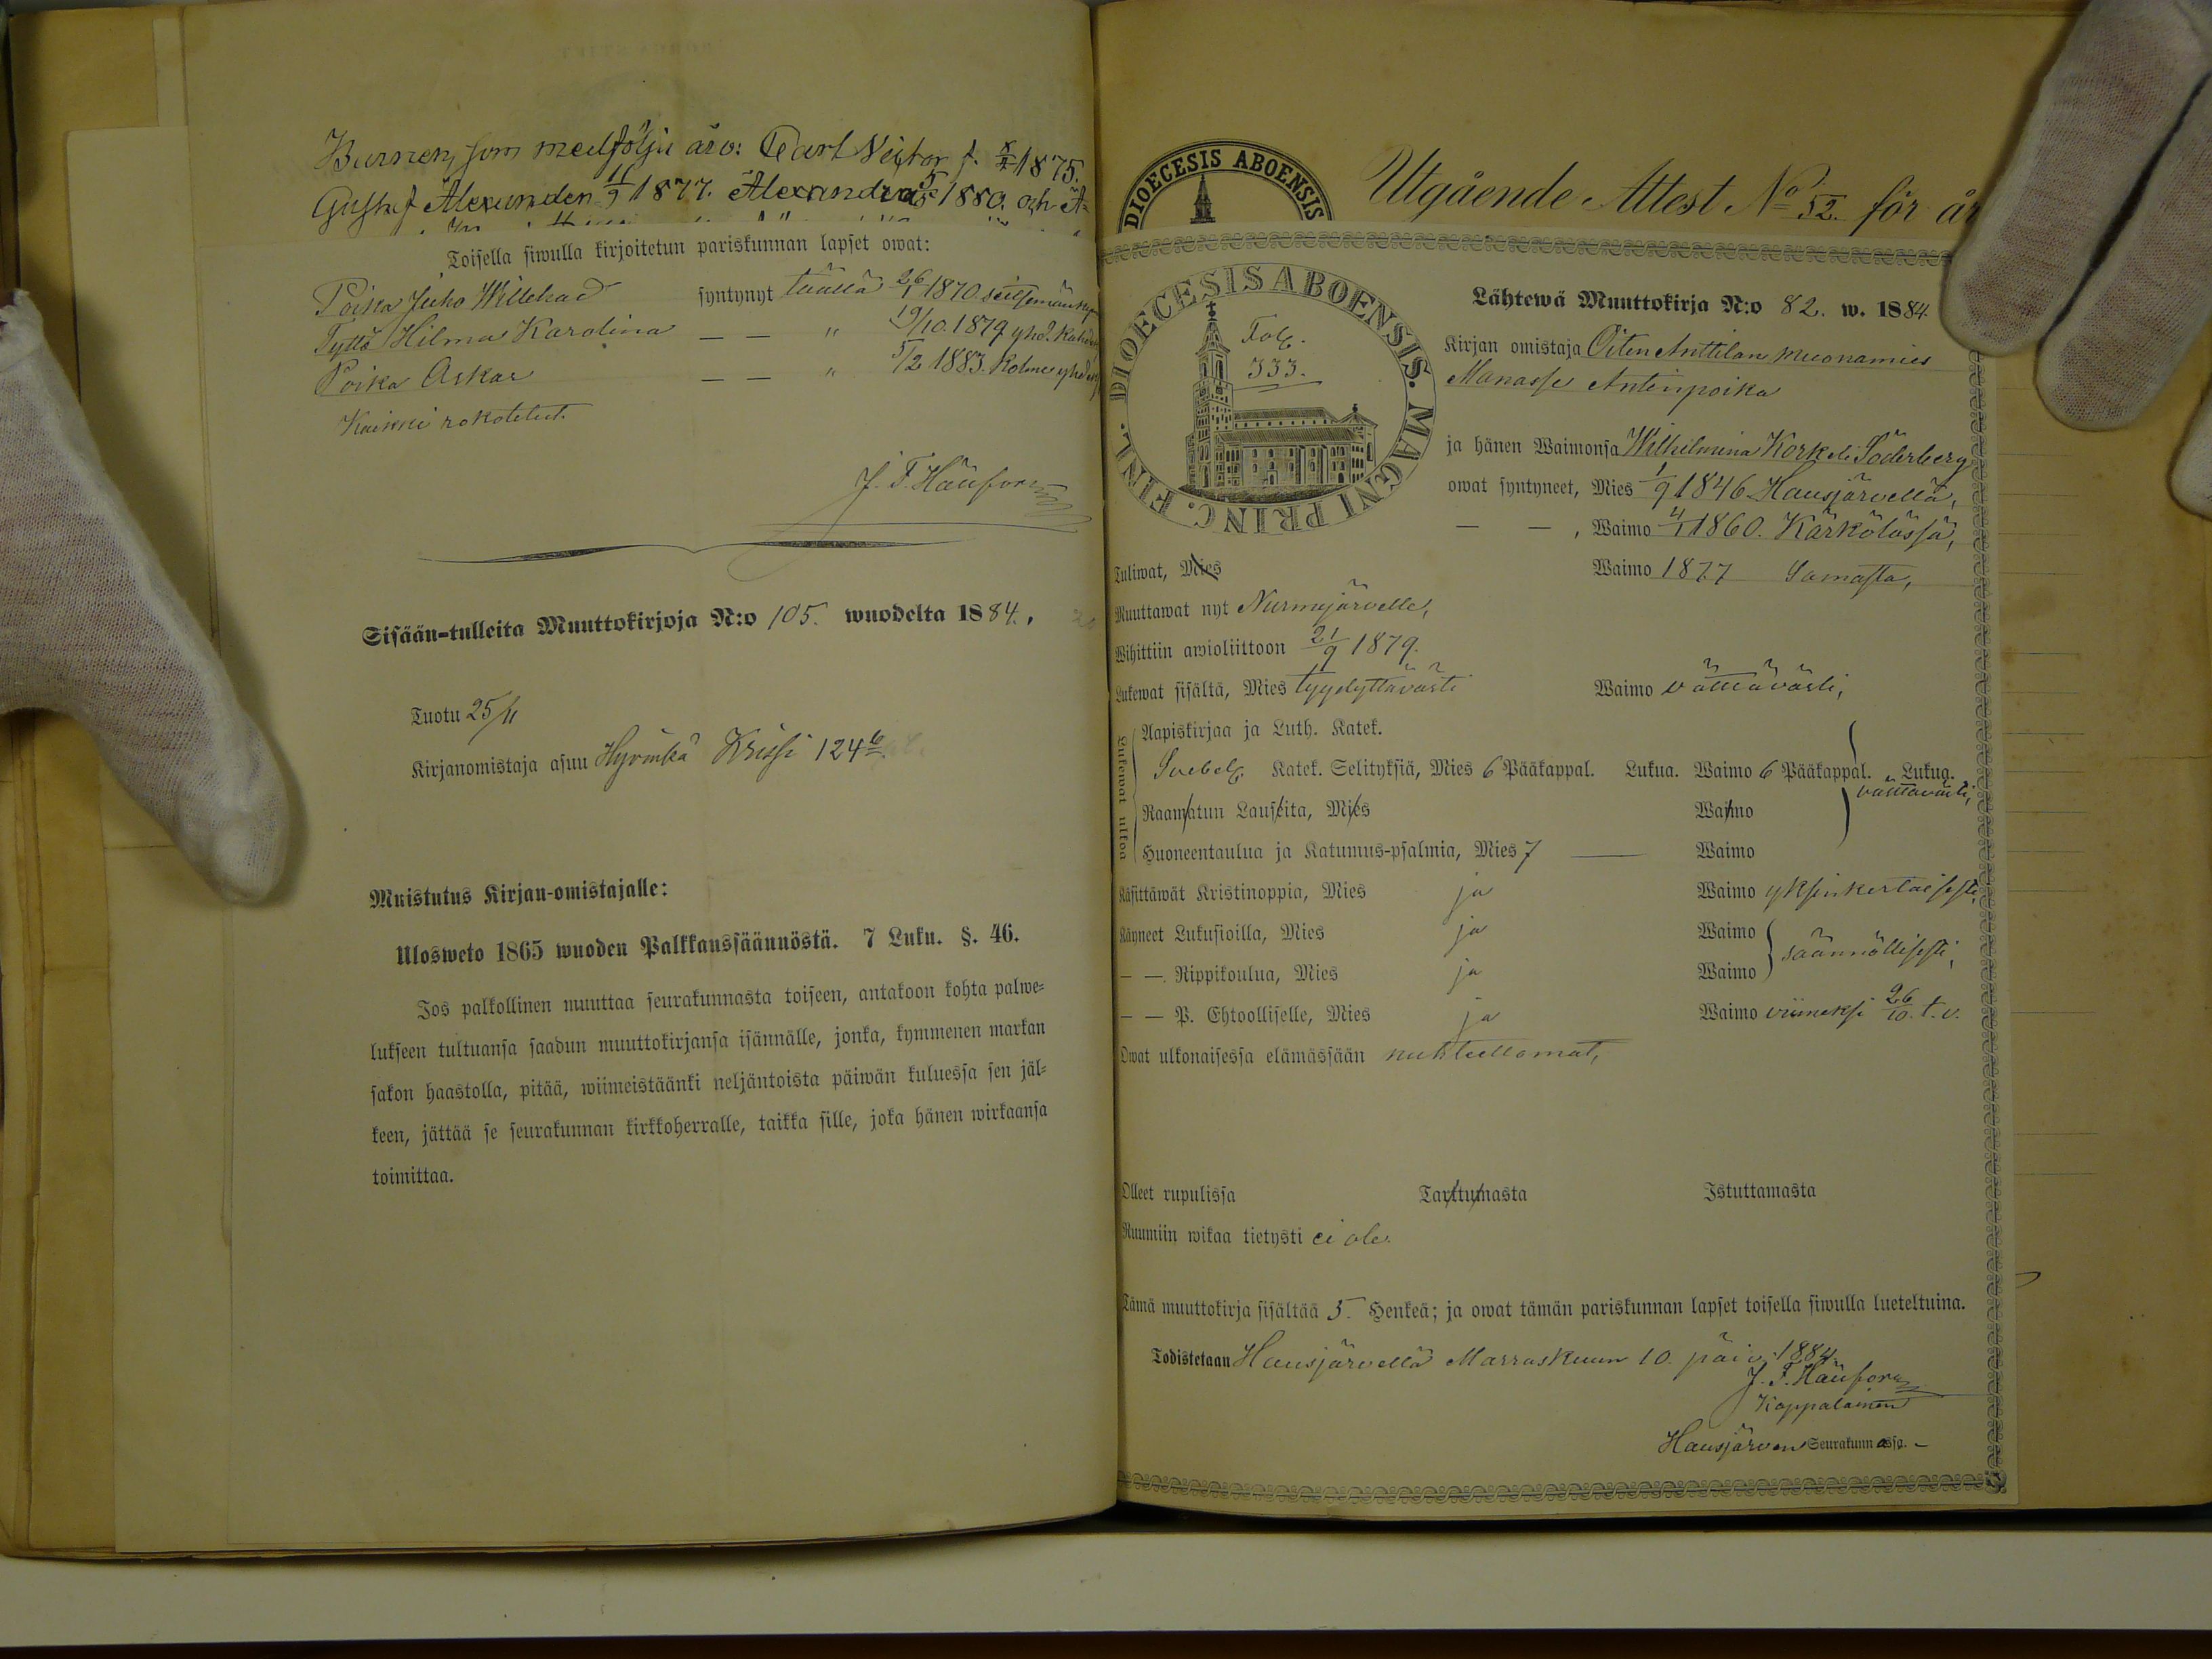 Barnen, som medfölja äro: Carl Victor f. 1875.
Gustaf Alexander 11/9 1877. Alexandra 5 1880. och A-
Toisella siwulla kirjoitetun pariskunnan lapset owat:
Poika Juho Willehad syntynyt täällä 26/1 1870.
Tyttö Hilma Karolina — — " 19/10. 1879
Poika Oskar — — " 5/2 1883. Kolme
Kaikki rokotetut.
J. F.
Sisään-tulleita Muuttokirjoja N:o 105. wuodelta 1884.
Tuotu 25/11
Kirjanomistaja asuu Hyvinkä Krissi 124
Muistutus Kirjan-omistajalle:
Ulosweto 1865 wuoden Palkkaussäännöstä. 7 Luku. §. 46.
Jos palkollinen muuttaa seurakunnasta toiseen, antakoon kohta palwe-
lukseen tultuansa saadun muuttokirjansa isännälle, jonka, kymmenen markan
sakon haastolla, pitää, wiimeistäänki neljäntoista päiwän kuluessa sen jäl-
keen, jättää se seurakunnan kirkkoherralle, taikka sille, joka hänen wirkaansa
toimittaa.
DIOECESIS ABOENSIS
Utgående Attest No 52. för år
DIOECESIS ABOENSIS. MAGNI PRINC. FINL.
Fol.
333.
Lähtewä Muuttokirja N:o 82. w. 1884
Kirjan omistaja Oiten Anttilan muonamies
Manasse Antinpoika
ja hänen Waimonsa Wilhelmina Söderberg
owat syntyneet, Mies 1/9 1846 Hausjärvellä,
— — , Waimo 4/1 1860. Kärkölässä,
Tuliwat, Mies Waimo 1877 Samasta,
Muuttawat nyt Nurmijärvelle,
Wihittiin awioliittoon 21/9 1879.
Lukewat sisältä, Mies tyydyttävästi Waimo välttävästi,
Lukewat ulkoa
Aapiskirjaa ja Luth. Katek.
Svebel. Katek. Selityksiä, Mies 6 Pääkappal. Lukua. Waimo 6 Pääkappal. Lukua.
välttävästi,
Raamatun Lauseita, Mies Waimo
Huoneentaulua ja Katumus-psalmia, Mies 7 — Waimo
Käsittäwät Kristinoppia, Mies ja Waimo yksinkertaisesti,
Käyneet Lukusioilla, Mies ja Waimo
säännöllisesti,
— — Rippikoulua, Mies ja Waimo
— — P. Ehtoolliselle, Mies ja Waimo viimeksi 26/10. t. v.
Owat ulkonaisessa elämässään nuhteettomat,
Olleet rupulissa Tarttumasta Istuttamasta
Ruumiin wikaa tietysti ei ole.
Tämä muuttokirja sisältää 5. Henkeä; ja owat tämän pariskunnan lapset toisella siwulla lueteltuina.
Todistetaan Hausjärvellä Marraskuun 10. päiv. 1884.
J. F.
Kappalainen
Hausjärven Seurakunnassa.